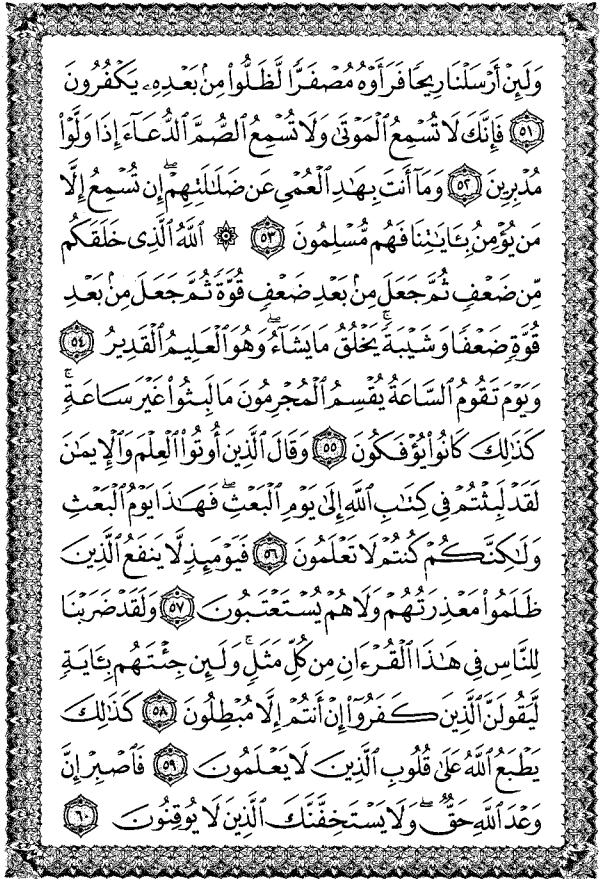 وَلَئِنْ أَرْسَلْنَا رِيحًا فَرَأَوْهُ مُصْفَرًّا لَّظَلُّوا۟ مِنۢ بَعْدِهِۦ يَكْفُرُونَ
٥١ فَإِنَّكَ لَا تُسْمِعُ ٱلْمَوْتَىٰ وَلَا تُسْمِعُ ٱلصُّمَّ ٱلدُّعَآءَ إِذَا وَلَّوْا۟
مُدْبِرِينَ ٥٢ وَمَآ أَنتَ بِهَـٰدِ ٱلْعُمْىِ عَن ضَلَـٰلَتِهِمْ ۖ إِن تُسْمِعُ إِلَّا
مَن يُؤْمِنُ بِـَٔايَـٰتِنَا فَهُم مُّسْلِمُونَ ٥٣ ۞ ٱللَّهُ ٱلَّذِى خَلَقَكُم
مِّن ضَعْفٍ ثُمَّ جَعَلَ مِنۢ بَعْدِ ضَعْفٍ قُوَّةً ثُمَّ جَعَلَ مِنۢ بَعْدِ
قُوَّةٍ ضَعْفًا وَشَيْبَةً ۚ يَخْلُقُ مَا يَشَآءُ ۖ وَهُوَ ٱلْعَلِيمُ ٱلْقَدِيرُ ٥٤
وَيَوْمَ تَقُومُ ٱلسَّاعَةُ يُقْسِمُ ٱلْمُجْرِمُونَ مَا لَبِثُوا۟ غَيْرَ سَاعَةٍ ۚ
كَذَٰلِكَ كَانُوا۟ يُؤْفَكُونَ ٥٥ وَقَالَ ٱلَّذِينَ أُوتُوا۟ ٱلْعِلْمَ وَٱلْإِيمَـٰنَ
لَقَدْ لَبِثْتُمْ فِى كِتَـٰبِ ٱللَّهِ إِلَىٰ يَوْمِ ٱلْبَعْثِ ۖ فَهَـٰذَا يَوْمُ ٱلْبَعْثِ
وَلَـٰكِنَّكُمْ كُنتُمْ لَا تَعْلَمُونَ ٥٦ فَيَوْمَئِذٍ لَّا يَنفَعُ ٱلَّذِينَ
ظَلَمُوا۟ مَعْذِرَتُهُمْ وَلَا هُمْ يُسْتَعْتَبُونَ ٥٧ وَلَقَدْ ضَرَبْنَا
لِلنَّاسِ فِى هَـٰذَا ٱلْقُرْءَانِ مِن كُلِّ مَثَلٍ ۚ وَلَئِن جِئْتَهُم بِـَٔايَةٍ
لَّيَقُولَنَّ ٱلَّذِينَ كَفَرُوٓا۟ إِنْ أَنتُمْ إِلَّا مُبْطِلُونَ ٥٨ كَذَٰلِكَ
يَطْبَعُ ٱللَّهُ عَلَىٰ قُلُوبِ ٱلَّذِينَ لَا يَعْلَمُونَ ٥٩ فَٱصْبِرْ إِنَّ
وَعْدَ ٱللَّهِ حَقٌّ ۖ وَلَا يَسْتَخِفَّنَّكَ ٱلَّذِينَ لَا يُوقِنُونَ ٦٠